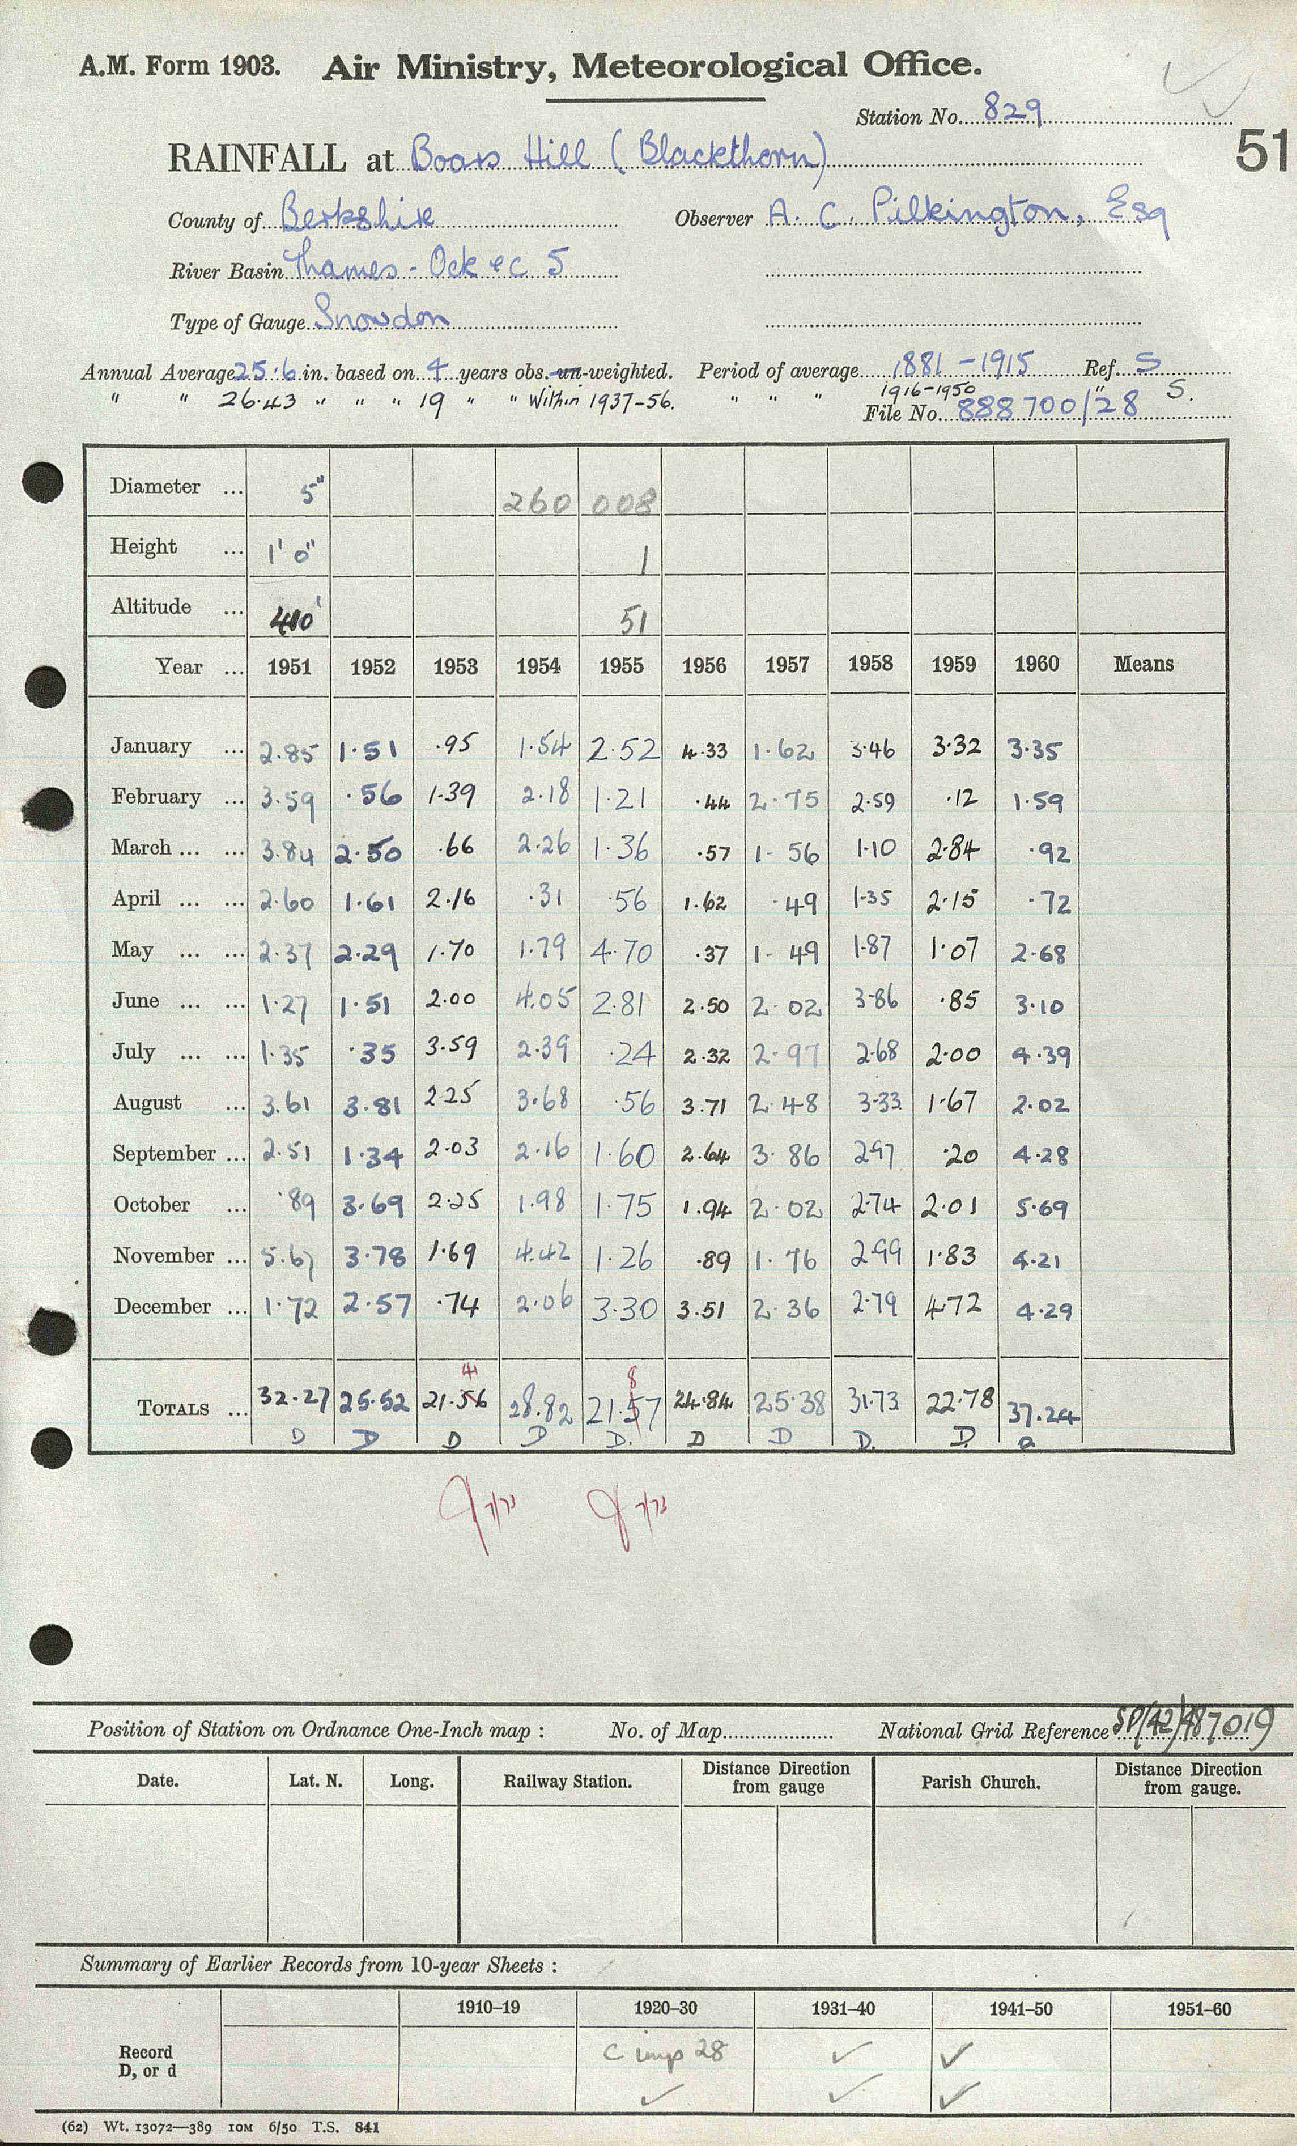 A.M. Form 1903. Air Ministry, Meteorological Office.
Station No. 829
51
RAINFALL at Boars Hill (Blackthorn)
County of Berkshire Observer A. C. Pilkington, Esq
River Basin Thames - Ock &c 5
Type of Gauge Snowdon
Annual Average 25.6 in. based on 4 years obs. un-weighted. Period of average 1881-1915 Ref. S
" " 26.43 " " " 19 " " Within 1937-56. " " " 1916-1950 " S.
File No. 888700/28
Diameter ... 5" 260 008
Height ... 1' 0" 1
Altitude ... 410' 51
Year ... 1951 1952 1953 1954 1955 1956 1957 1958 1959 1960 Means
January ... 2.85 1.51 .95 1.54 2.52 4.33 1.62 3.46 3.32 3.35
February ... 3.59 .56 1.39 2.18 1.21 .44 2.75 2.59 .12 1.59
March ... ... 3.84 2.50 .66 2.26 1.36 .57 1.56 1.10 2.84 .92
April ... ... 2.60 1.61 2.16 .31 .56 1.62 .49 1.35 2.15 .72
May ... ... 2.37 2.29 1.70 1.79 4.70 .37 1.49 1.87 1.07 2.68
June ... ... 1.27 1.51 2.00 4.05 2.81 2.50 2.02 3.86 .85 3.10
July ... ... 1.35 .35 3.59 2.39 .24 2.32 2.97 2.68 2.00 4.39
August ... 3.61 3.81 2.25 3.68 .56 3.71 2.48 3.33 1.67 2.02
September ... 2.51 1.34 2.03 2.16 1.60 2.64 3.86 2.97 .20 4.28
October ... .89 3.69 2.25 1.98 1.75 1.94 2.02 2.74 2.01 5.69
November ... 5.67 3.78 1.69 4.42 1.26 .89 1.76 2.99 1.83 4.21
December ... 1.72 2.57 .74 2.06 3.30 3.51 2.36 2.79 4.72 4.29
4 8
TOTALS ... 32.27 25.52 21.56 28.82 21.57 24.84 25.38 31.73 22.78 37.24
D D D D D. D D D. D.
7/73 7/73
Position of Station on Ordnance One-Inch map : No. of Map National Grid Reference SP(42)487019
Date. Lat. N. Long. Railway Station. Distance from gauge Direction Parish Church. Distance from gauge. Direction
Summary of Earlier Records from 10-year Sheets :
1910-19 1920-30 1931-40 1941-50 1951-60
Record C imp 28
D, or d
(62) Wt. 13072—389 10M 6/50 T.S. 841